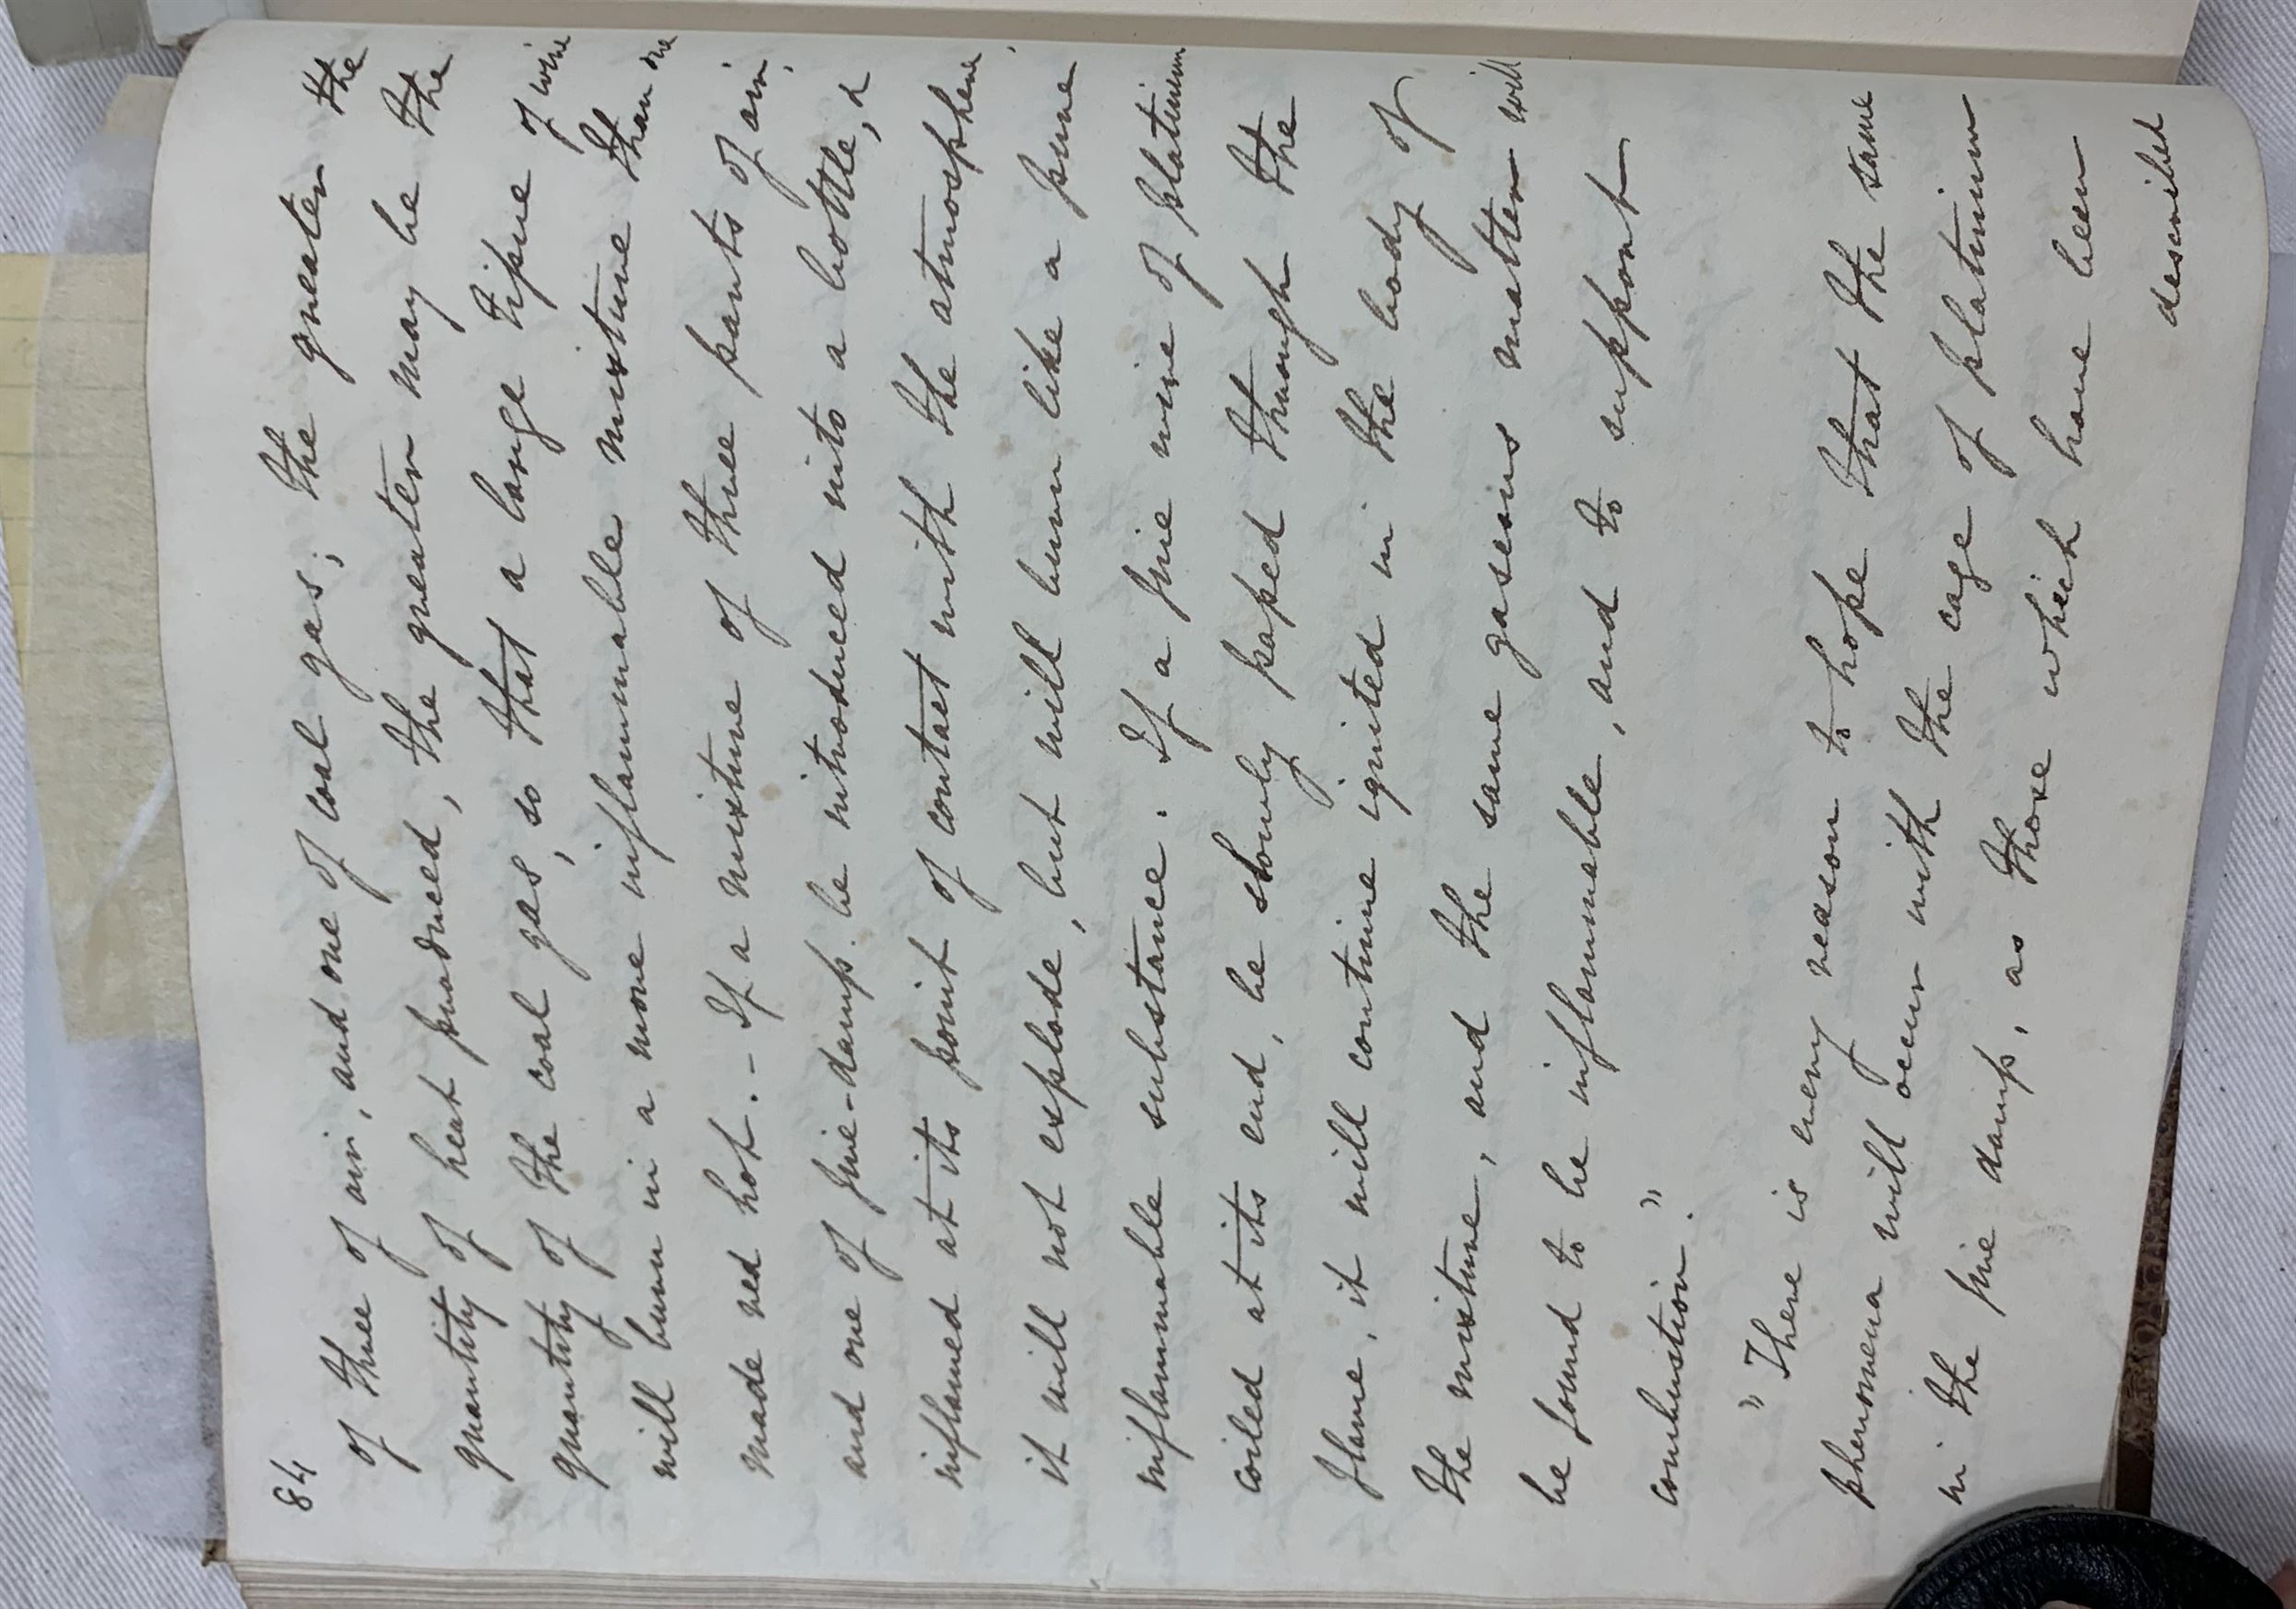 84
of three of air, and one of coal gas; the greater the
quantity of heat produced, the greater may be the
quantity of the coal gas, so that a large tissue of wire
will burn in a more inflammable mixture than one
made red hot. - If a mixture of three parts of air,
and one of fire-damp be introduced into a bottle, &
inflamed at its point of contact with the atmosphere,
it will not explode, but will burn like a pure
inflammable substance. If a fine wire of platinum
coiled at its end, be slowly passed through the
flame, it will continue ignited in the body of
the mixture, and the same gaseous matter will
be found to be inflammable, and to support
combustion."
"There is every reason to hope that the same
phenomena will occur with the cage of platinum
in the fire damp, as those which have been
described